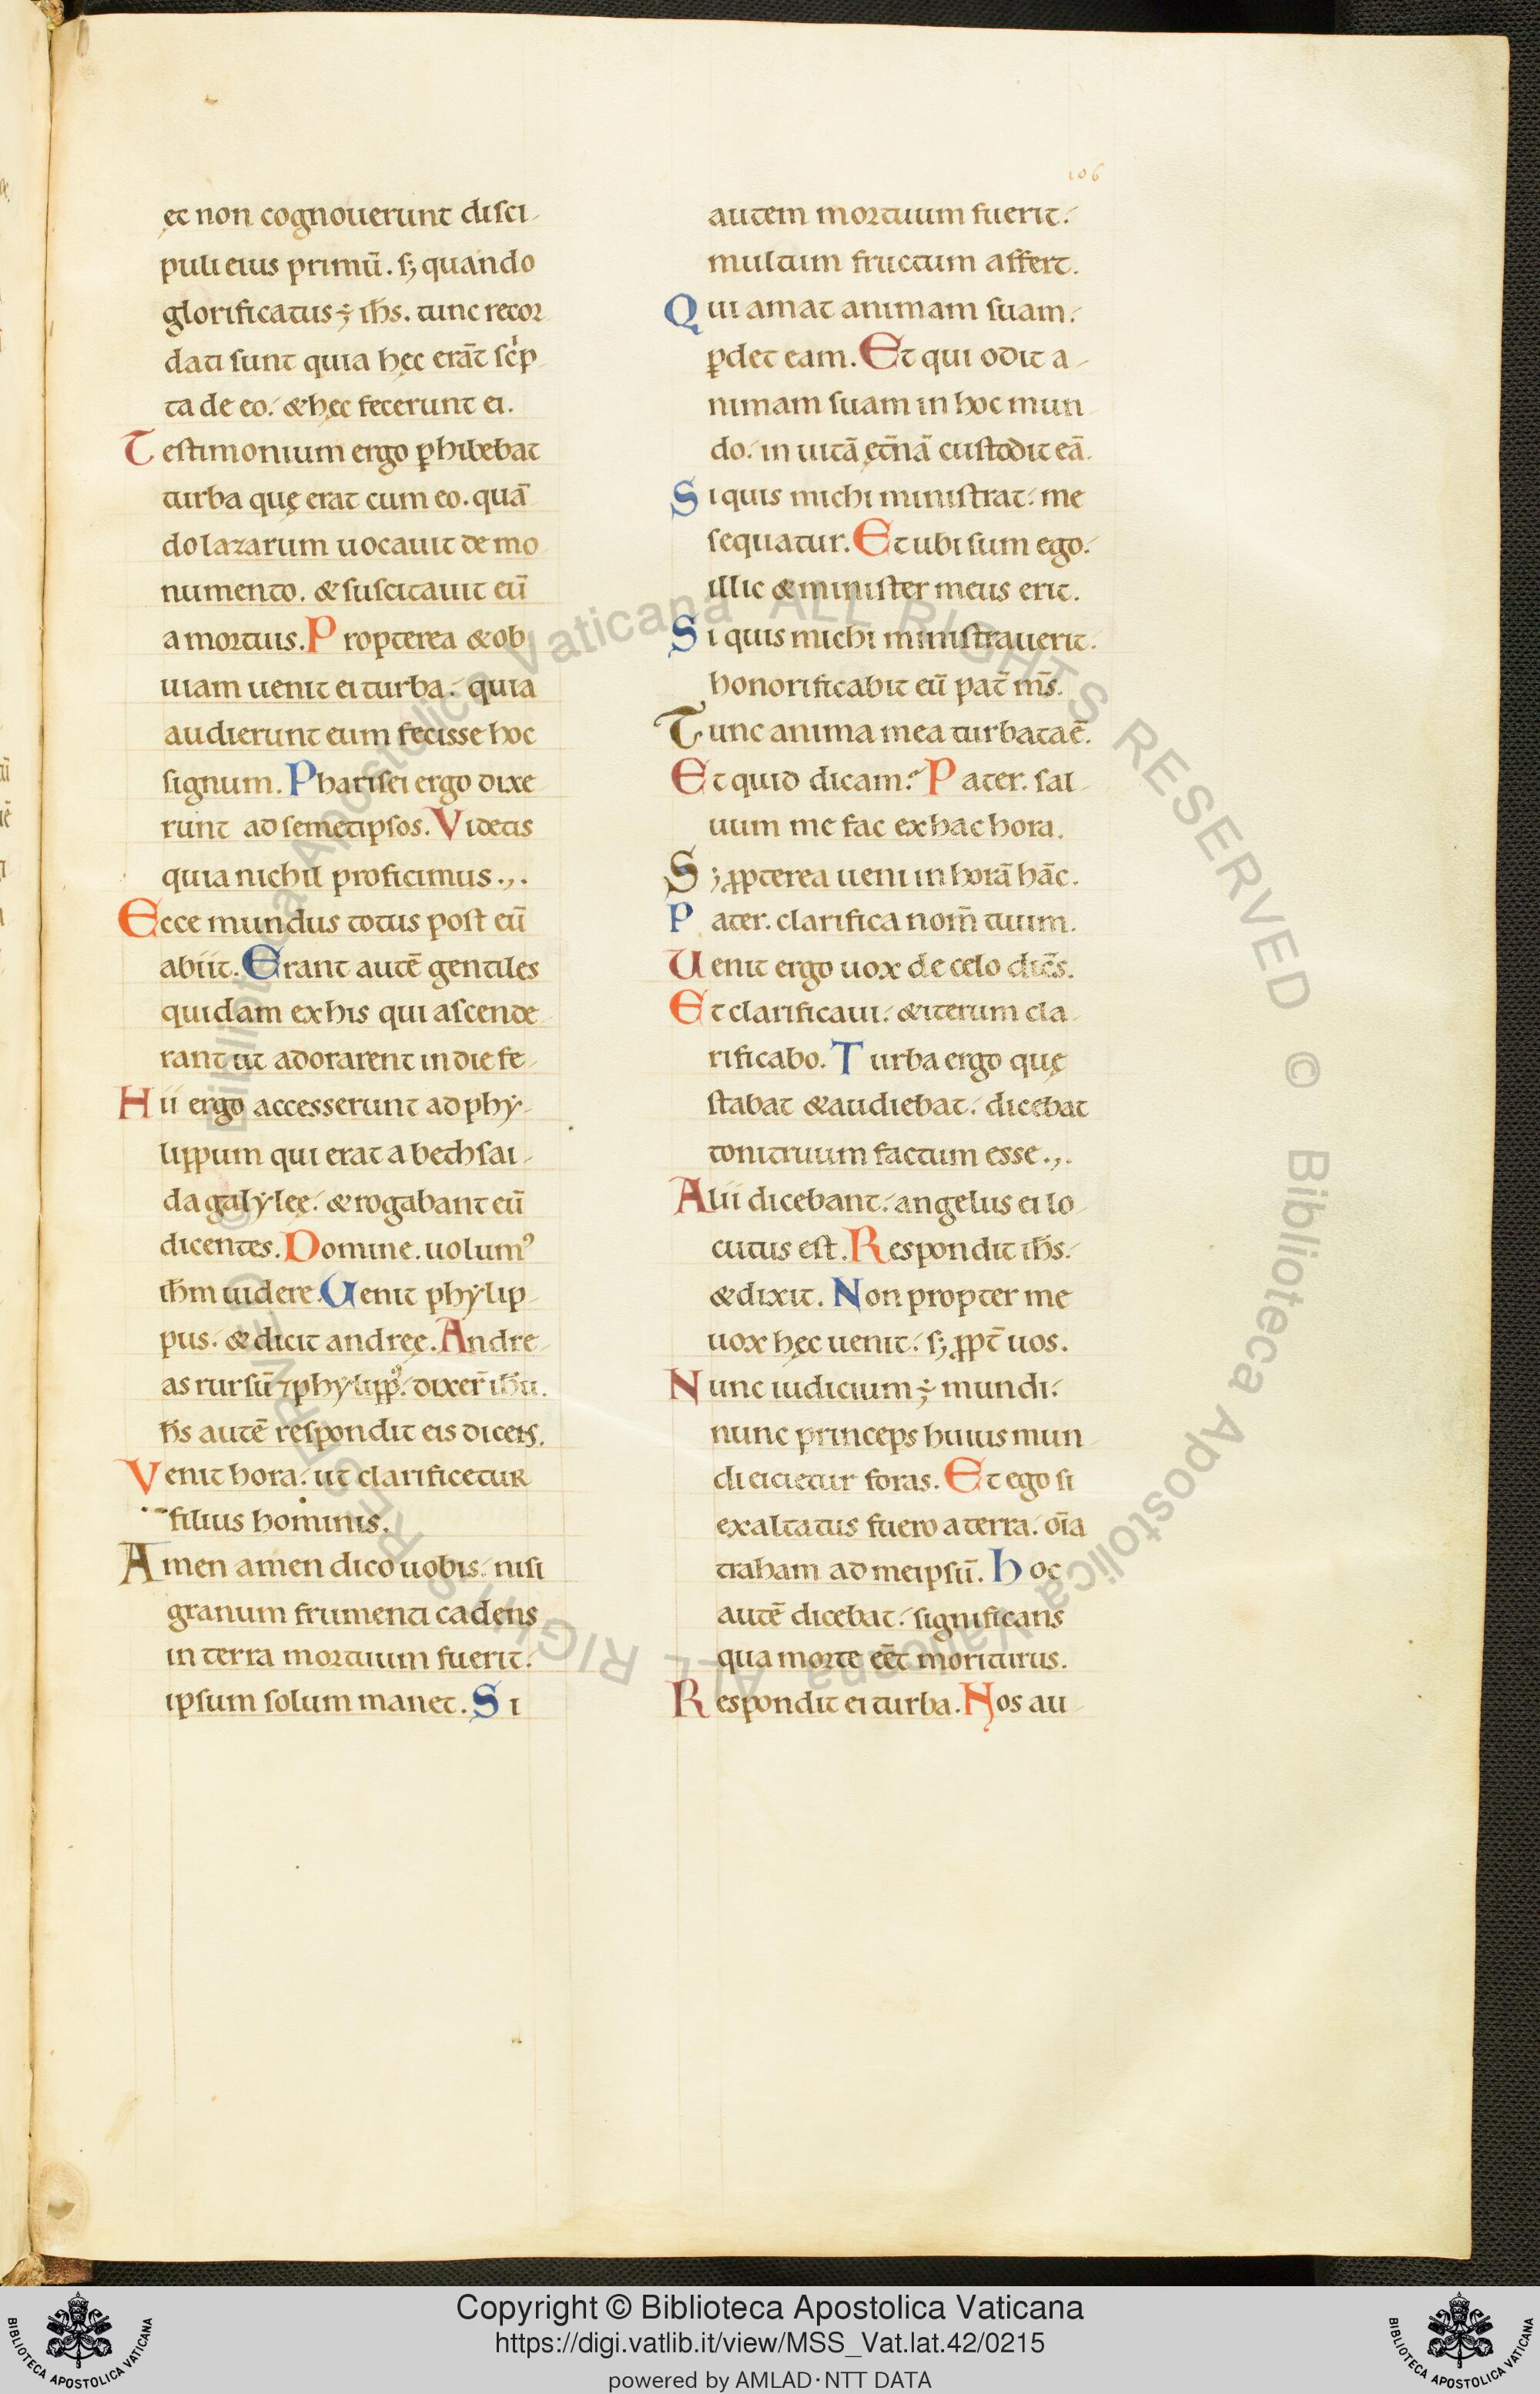 106
ęt non cognouerunt disci-
puli eius primū. sꝫ quando
glorificatus ÷ ihs̄. tunc recor
dati sunt quia hęc erāt sc̄ⁱp
ta de eo. & hęc fecerunt ei.
Testimonium ergo ꝑhibebat
turba quę erat cum eo. quā
do lazarum uocauit de mo
numento. & suscitauit eū
a mortuis. Propterea & ob
uiam uenit ei turba. quia
audierunt eum fecisse hoc
signum. Pharisei ergo dixe
runt ad semetipsos. Videtis
quia nichil proficimus.,.
Ecce mundus totus post eū
abiit. Erant autē gentiles
quidam ex his qui ascende
rant ut adorarent in die fe-
Hii ergo accesserunt ad phẏ-
lippum qui erat a bethsai-
da galẏlęe. & rogabant eū
dicentes. Domine. uolumꝰ
ihm̄ uidere. Uenit phẏlip-
pus. & dicit andręe. Andre-
as rursū ⁊ phẏlippꝰ. dixer̄ ihū.
hs̄ autē respondit eis dicens.
Venit hora. ut clarificetur
filius hominis.
Amen amen dico uobis. nisi
granum frumenti cadens
in terra mortuum fuerit.
ipsum solum manet. Si
autem mortuum fuerit.
multum fructum affert.
Qui amat animam suam.
ꝑdet eam. Et qui odit a-
nimam suam in hoc mun
do. in uitā ęt̄nā custodit eā.
Si quis michi ministrat. me
sequatur. Et ubi sum ego.
illic & minister meus erit.
Si quis michi ministrauerit.
honorificabit eū pat̄ ms̄.
Tunc anima mea turbata ē.
Et quid dicam? Pater. sal-
uum me fac ex hac hora.
Sꝫ ꝓpterea ueni in horā hāc.
Pater. clarifica nom̄ tuum.
Uenit ergo uox de celo dicēs.
Et clarificaui. & iterum cla-
rificabo. Turba ergo quę
stabat & audiebat. dicebat
tonitruum factum esse.,.
Alii dicebant. angelus ei lo-
cutus est. Respondit ihs̄.
& dixit. Non propter me
uox hęc uenit. sꝫ ꝓpt̄ uos.
Nunc iudicium ÷ mundi.
nunc princeps huius mun-
di eicietur foras. Et ego si
exaltatus fuero a terra. oīa
traham ad meipsū. Hoc
autē dicebat. significans
qua morte eēt moriturus.
Respondit ei turba. Nos au-
© Biblioteca Apostolica Vaticana ALL RIGHTS RESERVED © Biblioteca Apostolica Vaticana ALL RIGHTS RESERVED
BIBLIOTECA APOSTOLICA VATICANA
Copyright © Biblioteca Apostolica Vaticana
https://digi.vatlib.it/view/MSS_Vat.lat.42/0215
powered by AMLAD·NTT DATA
BIBLIOTECA APOSTOLICA VATICANA